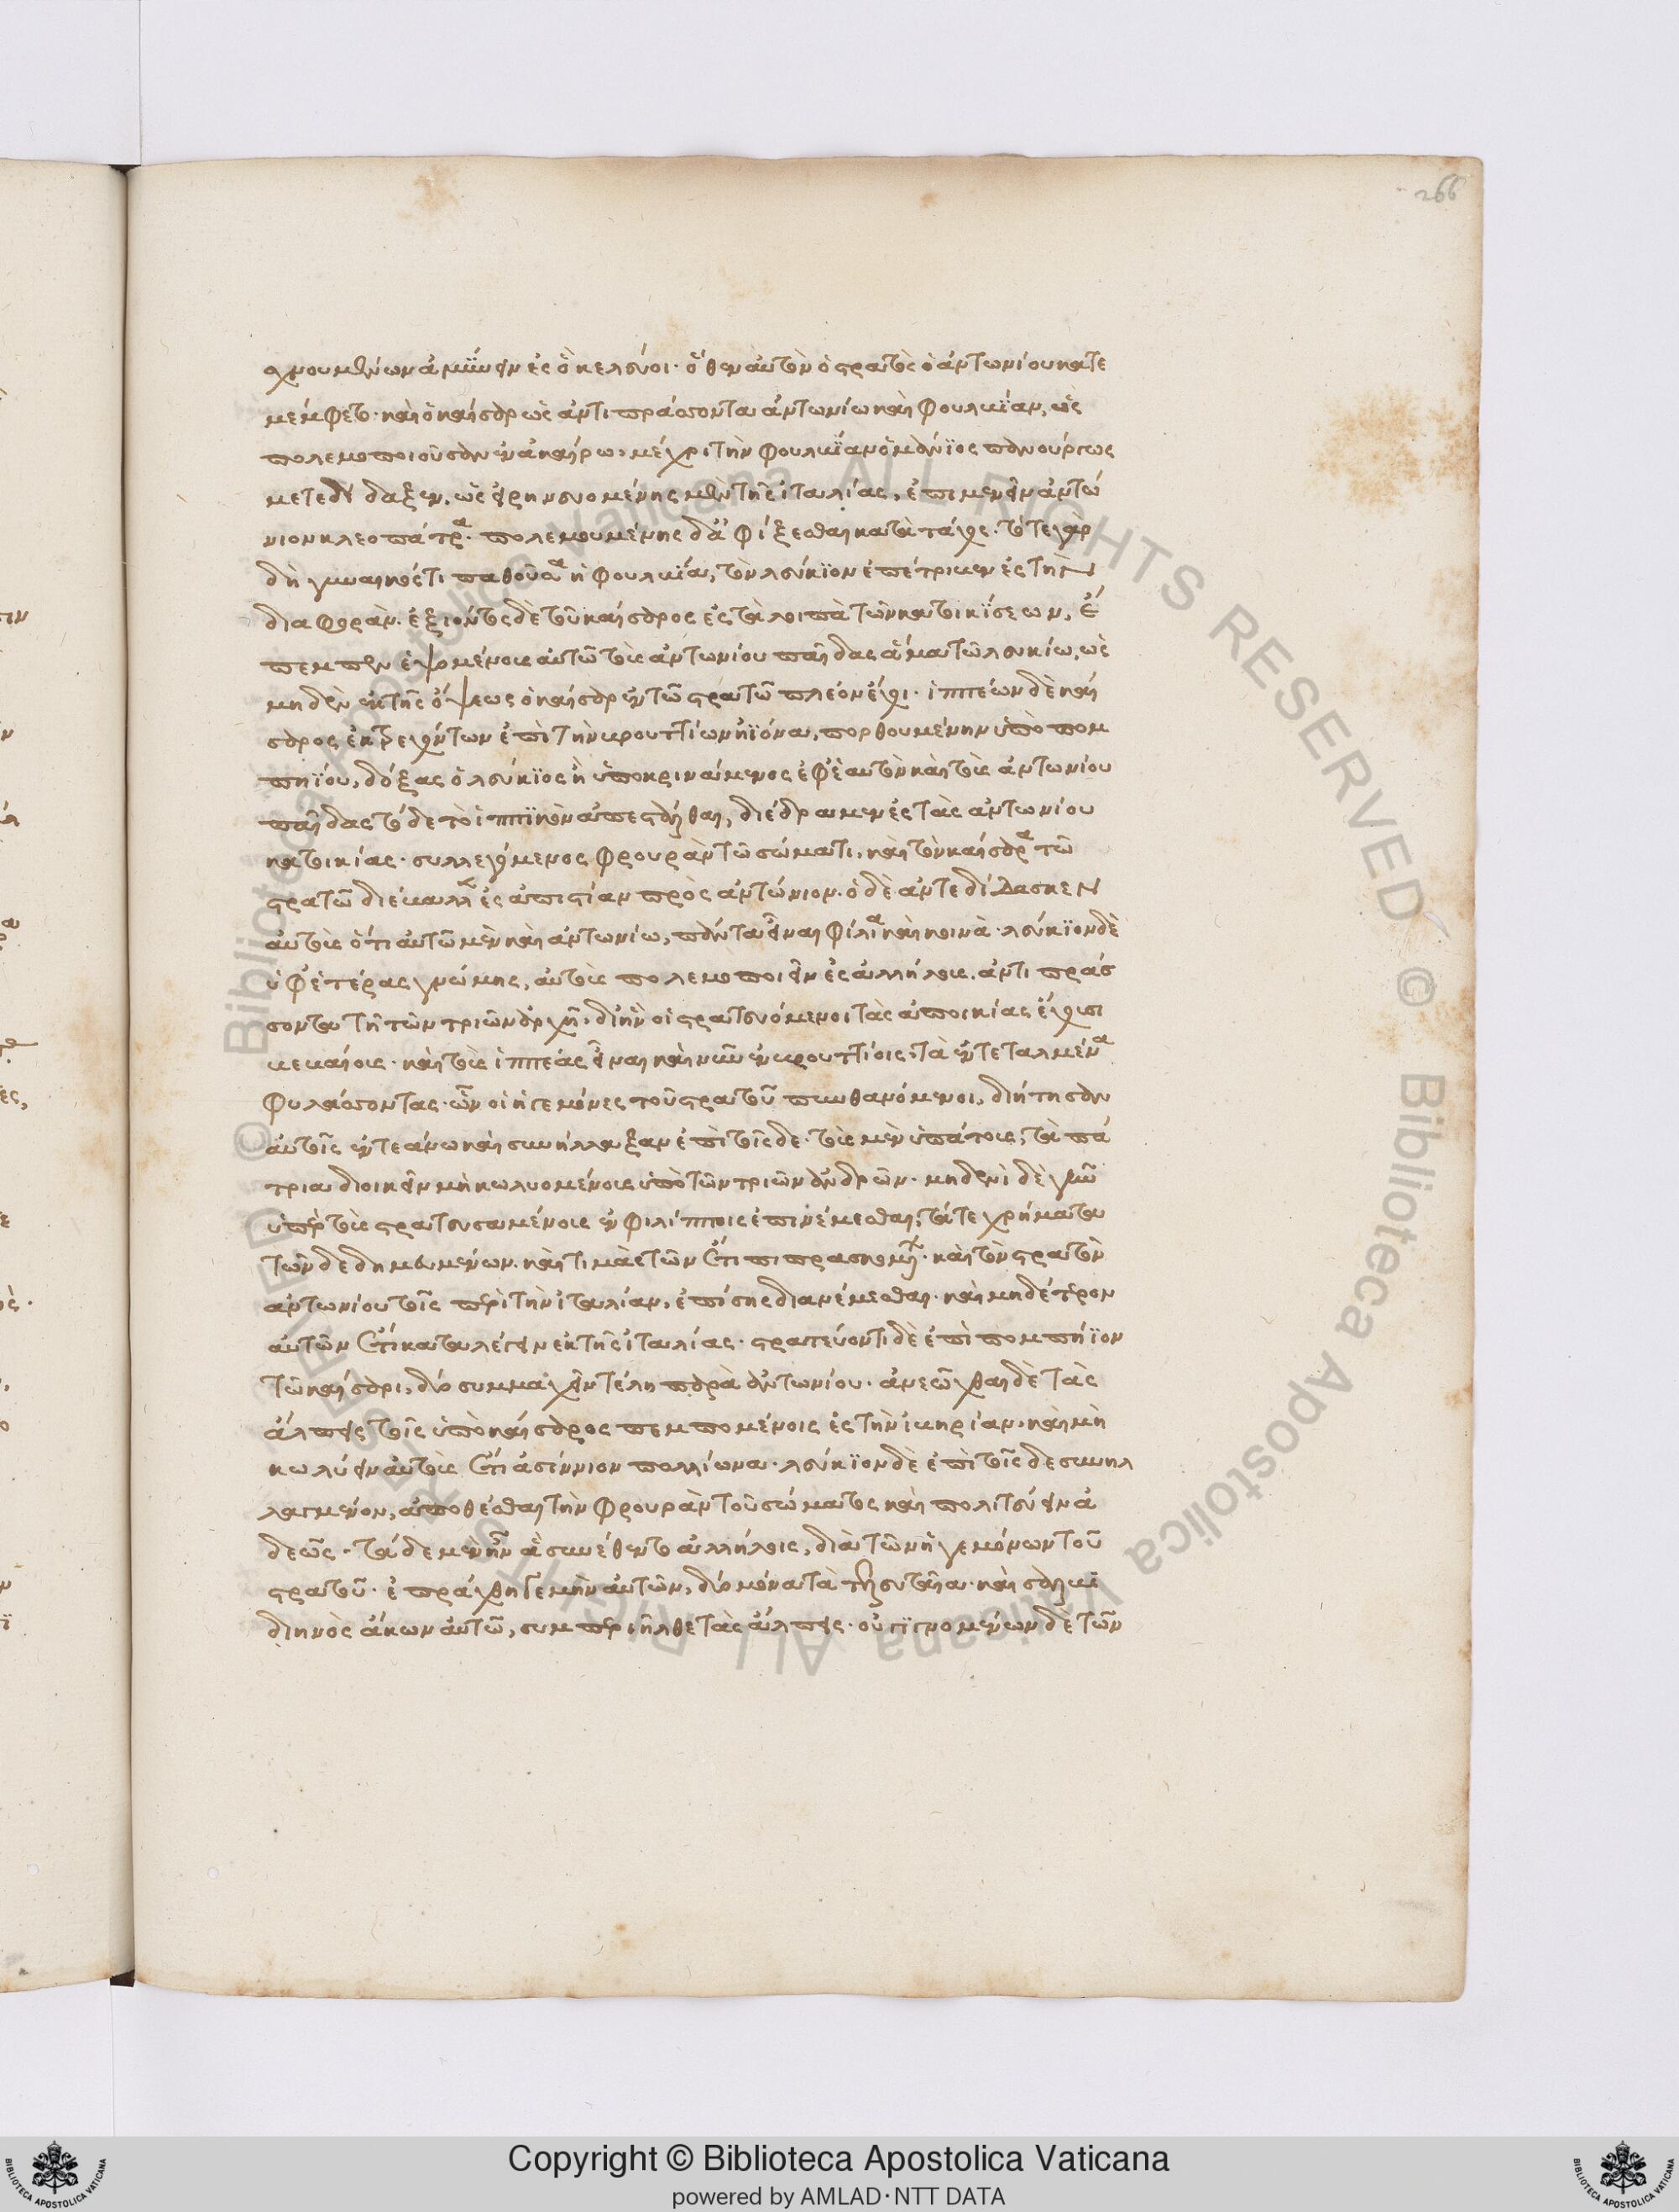 χνουμένων ἀμύνειν ἐς ὃ κελεύοι· ὅθεν αὐτὸν ὁ στρατὸς ὁ ἀντωνίου κατε
μέμφετο· καὶ ὁ καῖσαρ ὡς ἀντιπράσσοντα ἀντωνίω καὶ φουλβίαν, ὡς
πολεμοποιοῦσαν ἐν ἀκαίρω· μέχρι τὴν φουλβίαν ὁ μάνιος πανούργως
μετεδίδαξεν, ὡς εἰρηνευομένης μὲν τῆς ἰταλίας, ἐπιμενεῖν ἀντώ
νιον κλεοπάτρα· πολεμουμένης δ' ἀφίξεσθαι κατὰ τάχος· τότε γὰρ
δὴ γυναικός τι παθοῦσα ἡ φουλβία, τὸν λεύκιον ἐπέτριβεν ἐς τὴν
διαφοράν· ἐξιόντος δὲ τοῦ καίσαρος ἐς τὰ λοιπὰ τῶν κατοικίσεων, ἔ
πεμπεν ἑψομένους αὐτῶ τοὺς ἀντωνίου παῖδας ἅμα τῶ λευκίω, ὡς
μηδὲν ἐκ τῆς ὄψεως ὁ καῖσαρ ἐν τῶ στρατῶ πλέον ἔχοι· ἱππέων δὲ καί
σαρος ἐκτρεχόντων ἐπὶ τὴν βρουττίων ἠϊόνα, πορθουμένην ὑπὸ πομ
πηΐου, δόξας ὁ λεύκιος ἢ ὑποκρινάμενος ἐφ' ἑαυτὸν καὶ τοὺς ἀντωνίου
παῖδας τόδε τὸ ἱππικὸν ἀπεστάλθαι, διέδραμεν ἐς τὰς ἀντωνίου
κατοικίας· συλλεγόμενος φρουρὰν τῶ σώματι, καὶ τὸν καίσαρα τῶ
στρατῶ διέβαλλεν ἐς ἀπιστίαν πρὸς ἀντώνιον· ὁ δὲ ἀντεδίδασκεν
αὐτοὺς ὅτι αὐτῶ μὲν καὶ ἀντωνίω, πάντα εἶναι φίλια καὶ κοινὰ· λεύκιον δὲ
ὑφ' ἑτέρας γνώμης, αὐτοὺς πολεμοποιεῖν ἐς ἀλλήλους, ἀντιπράσ
σοντα τῆ τῶν τριῶν ἀρχῆ· δι' ἣν οἱ στρατευόμενοι τὰς ἀποικίας ἔχουσι
βεβαίους· καὶ τοὺς ἱππέας εἶναι καὶ νῦν ἐν βρουττίοις, τὰ ἐντεταλμένα
φυλάσσοντας· ὧν οἱ ἡγεμόνες τοῦ στρατοῦ πυνθανόμενοι, διήτησαν
αὐτοῖς ἐν τεάνω καὶ συνήλλαξαν ἐπὶ τοῖσδε· τοὺς μὲν ὑπάτους, τὰ πά
τρια διοικεῖν μὴ κωλυομένους ὑπὸ τῶν τριῶν ἀνδρῶν· μηδενὶ δὲ γῆν
ὑπὲρ τοὺς στρατευσαμένους ἐν φιλίπποις ἐπινέμεσθαι, τά τε χρήματα
τῶν δεδημευμένων καὶ τιμὰς τῶν ἔτι πιπρασκομένων· καὶ τὸν στρατὸν
ἀντωνίου τοῖς περὶ τὴν ἰταλίαν, ἐπίσης διανέμεσθαι· καὶ μηδέτερον
αὐτῶν ἔτι καταλέγειν ἐκ τῆς ἰταλίας· στρατεύοντι δὲ ἐπὶ πομπήϊον
τῶ καίσαρι, δύο συμμαχεῖν τέλη παρὰ ἀντωνίου· ἀνεῶχθαι δὲ τὰς
ἄλπεις τοῖς ὑπὸ καίσαρος πεμπομένοις ἐς τὴν ἰβηρίαν· καὶ μὴ
κωλύειν αὐτοὺς ἔτι ἀσίννιον πολλίωνα· λεύκιον δὲ ἐπὶ τοῖσδε συνηλ
λαγμένον, ἀποθέσθαι τὴν φρουρὰν τοῦ σώματος καὶ πολιτεύειν ἀ
δεῶς· τάδε μὲν ἦν ἃ συνέθεντο ἀλλήλοις, διὰ τῶν ἡγεμόνων τοῦ
στρατοῦ· ἐπράχθη γε μὴν αὐτῶν, δύο μόνα τὰ τελευταῖα· καὶ σαλβι
διηνὸς ἄκων αὐτῶ, συμπεριῆλθε τὰς ἄλπεις· οὐ γιγνομένων δὲ τῶν
266